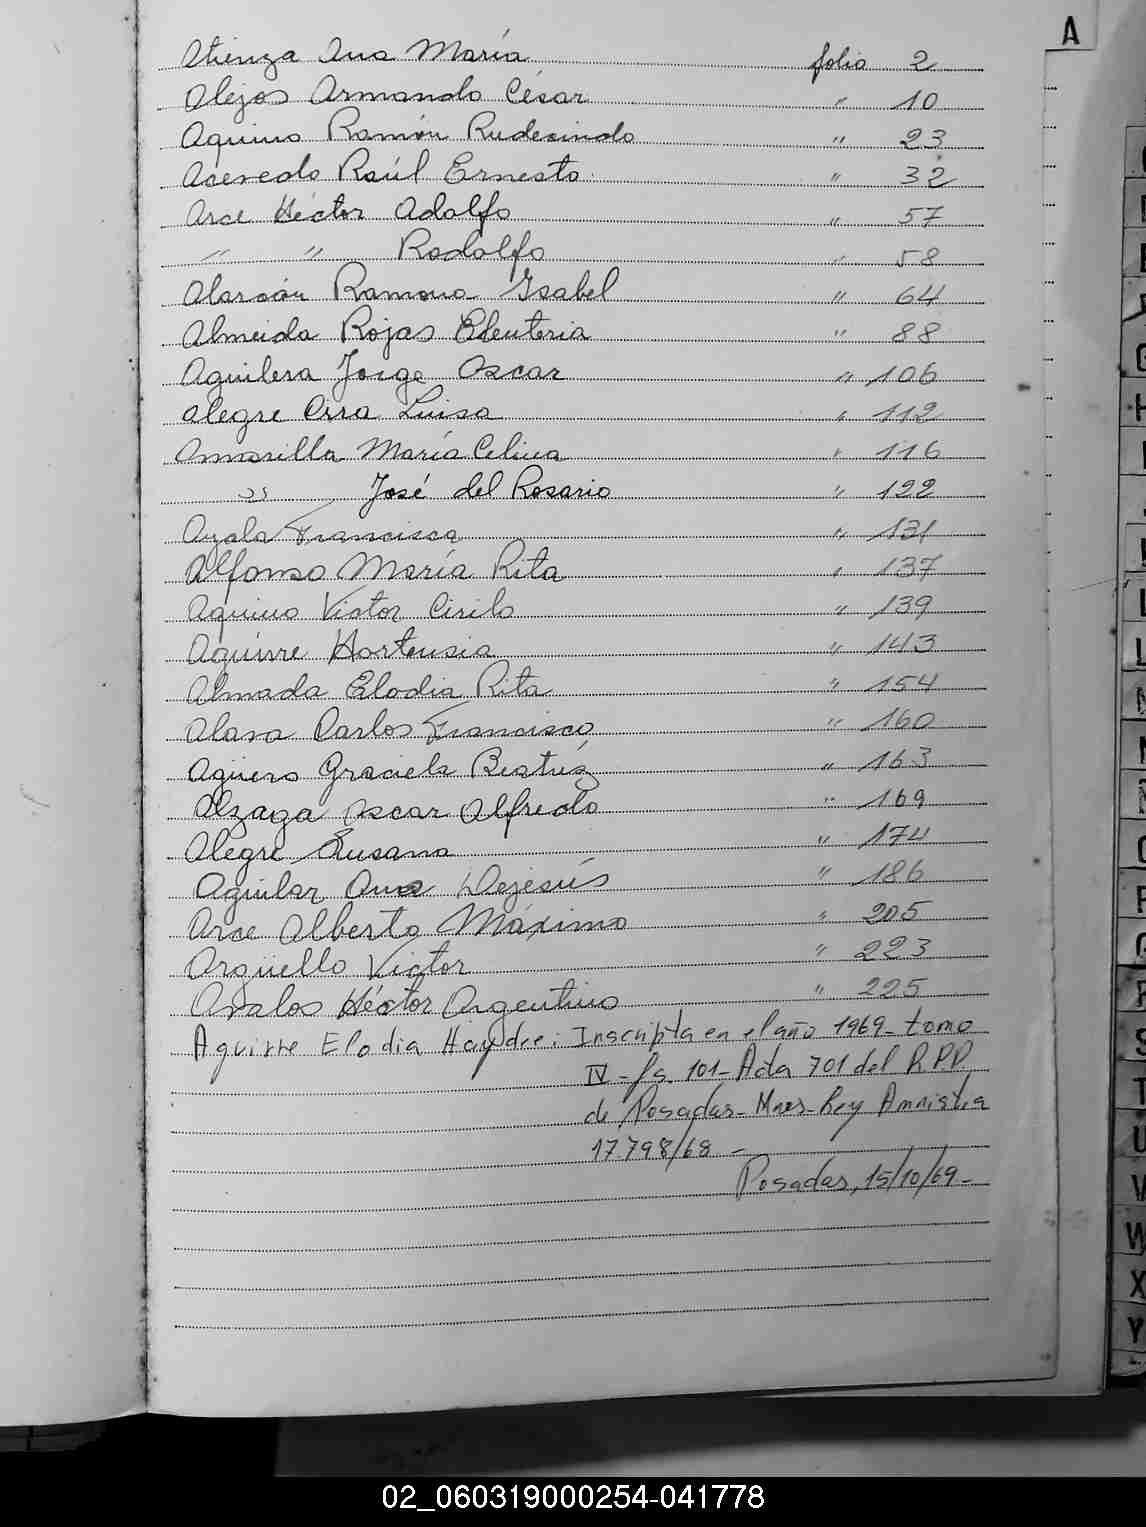 A
Atienza Ana María folio 2
Alejos Armando César " 10
Aquino Ramón Rudecindo " 23
Acevedo Raúl Ernesto " 32
Arce Héctor Adolfo " 57
" " Rodolfo " 58
Alarcón Ramona Ysabel " 64
Almeida Rojas Eleuteria " 88
Aguilera Jorge Oscar " 106
Alegre Luisa " 112
Amarilla María Celina " 116
" José del Rosario " 122
Ayala Francisca " 131
Alfonso María Rita " 137
Aquino Victor Cirilo " 139
Aguirre Hortensia " 143
Almada Elodia Rita " 154
Alava Carlos Francisco " 160
Agüero Graciela Beatríz " 163
Alzaga Oscar Alfredo " 169
Alegre Susana " 174
Aguilar Ana Dejesús " 186
Arce Alberto Máximo " 205
Argüello Victor " 223
Avalos Héctor Argentino " 225
Aguirre Elodia Haydee: Inscripta en el año 1969- tomo
IV- fs. 101- Acta 701 del R.P.P.
de Posadas- Mnes- Ley Amnistia
17.798/68 -
Posadas, 15/10/69-
H
L
L
S
T
U
V
W
X
Y
02_060319000254-041778